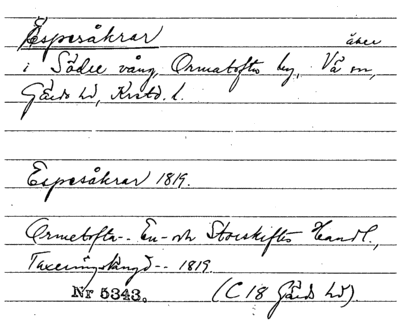 Espesåkrar åker
i Södre vång, Ormatofta by, Vä sn,
Gärds hd, Krstd. l.
Espesåkrar 1819.
Ormetofta-- En- och Storskiftes Handl.,
Taxeringslängd-- 1819.
Nr 5343. (C 18 Gärds hd).